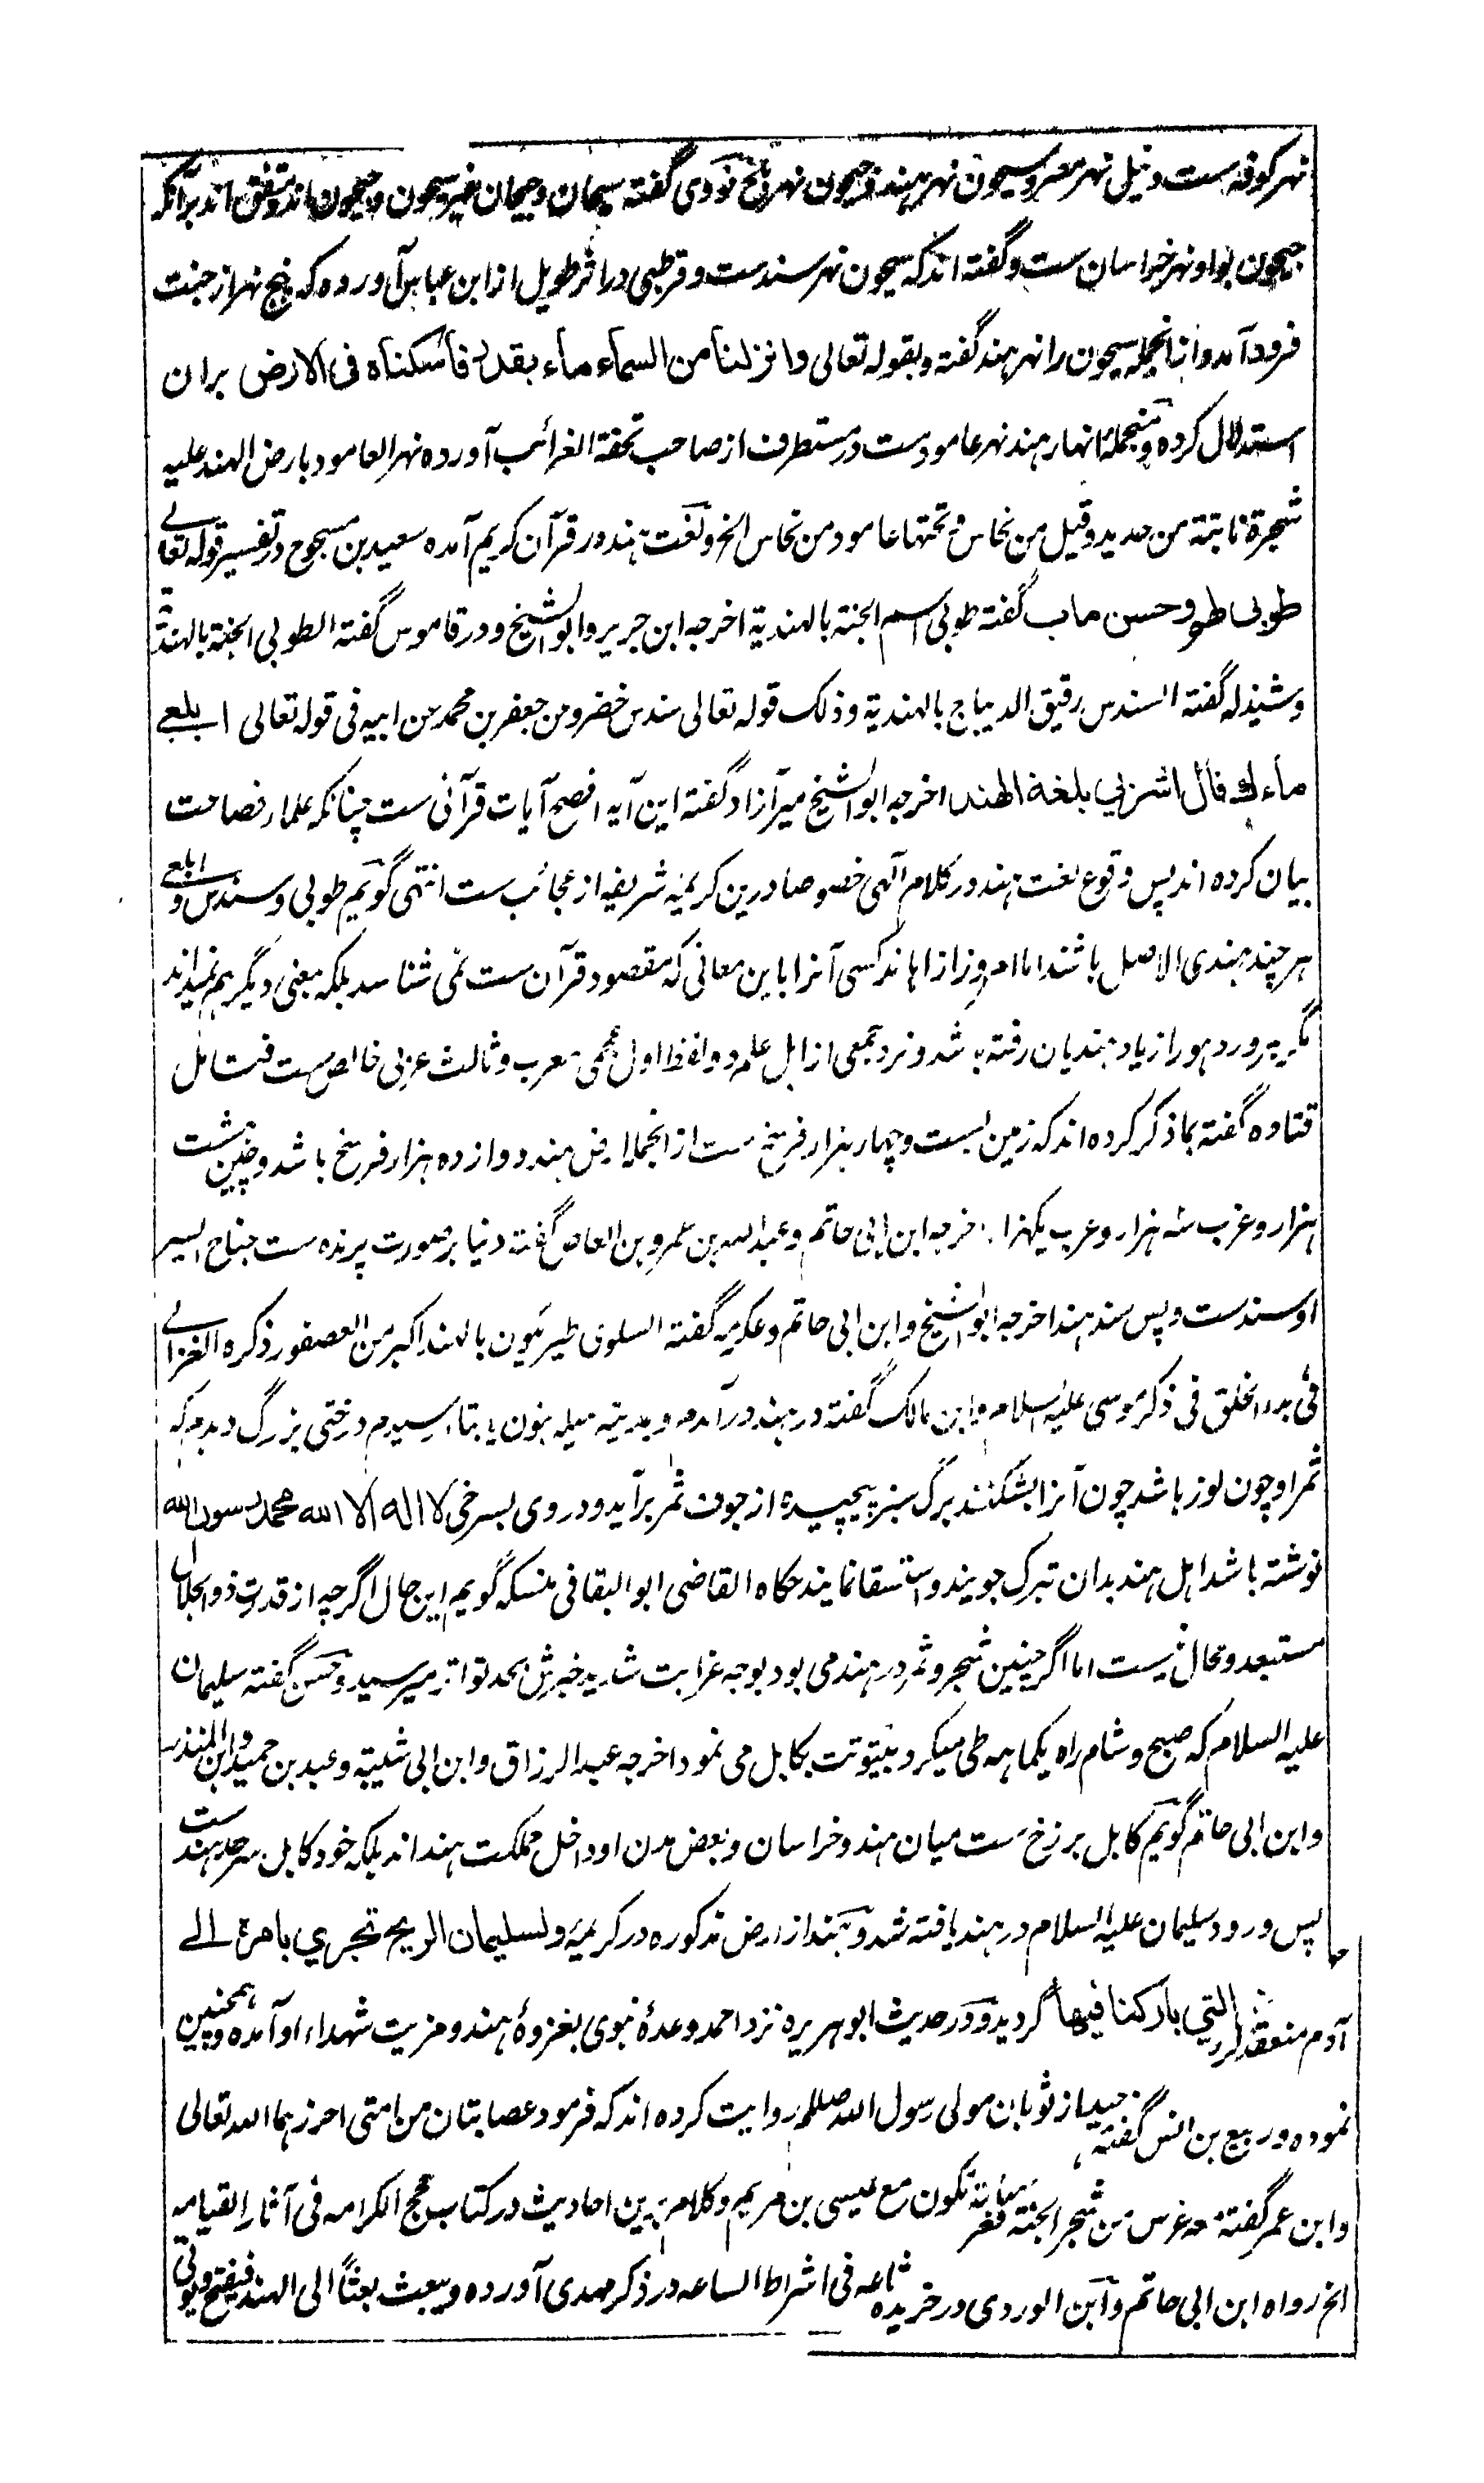 نهر کوفه ست و نیل نهر مصر و سیحون نهر هند و جیحون نهر بلخ نووی گفته سیحان و جیحان غیر سیحون و جیحون اند و متفق اند بر آنکه
جیحون بواو نهر خراسان ست و گفته اند که سیحون نهر سندست و قرطبی در اثر طویل از ابن عباس آورده که پنج نهر از جنت
فرود آمد و ازانجمله سیحون را نهر هند گفته و بقوله تعالی وانزلنا من السماء ماء بقدر فاسکناه فی الارض بران
استدلال کرده و منجمله انهار هند نهر عامودست در مستطرف از صاحب تحفة الغرائب آورده نهر العامود بارض الهند علیه
شجرة نابتة من حدید و قیل من نحاس و تحتها عامود من نحاس الخ و لغت هند در قرآن کریم آمده سعید بن مسجوح در تفسیر قوله تعالے
طوبی لهم و حسن ماب گفته طوبی اسم الجنة بالهندیة اخرجه ابن جریر و ابو الشیخ و در قاموس گفته الطوبی الجنة بالهندیة
و شیذله گفته السندس رقیق الدیباج بالهندیة و ذلک قوله تعالی سندس خضر و من جعفر بن محمد عن ابیه فی قوله تعالی ابلعے
ماءك قال اشربي بلغة الهند اخرجه ابو الشیخ میر آزاد گفته این آیه افصح آیات قرآنی ست چنانکه علماء فصاحت
بیان کرده اند پس وقوع لغت هند در کلام آلهی خصوصا درین کریمه شریفه از عجائب ست انتهی گویم طوبی و سندس و ابلعی
هر چند هندی الاصل باشند اما امروز از اهل هند کسی آنرا باین معانی که مقصود قرآن ست نمی شناسد بلکه بمعنی دیگر هم نمیدانند
مگر بمرور دهور از یاد هندیان رفته باشد و نزد جمعی از اهل علم دو لفظ اول عجمی معرب و ثالث عربی خالص ست فتامل
قتاده گفته بما ذکر کرده اند که زمین بست و چهار هزار فرسخ ست ازانجمله ارض هند دوازده هزار فرسخ باشد و چین هشت
هزار و غرب سه هزار و عرب یکهزار اخرجه ابن ابی حاتم و عبد الله بن عمرو بن العاص گفته دنیا بر صورت پرنده ست جناح ایسر
او سندست و پس سند هند اخرجه ابو الشیخ و ابن ابی حاتم و عکرمه گفته السلوی طیر یکون بالهند اکبر من العصفور ذکره الغزالے
فی بدء الخلق فی ذکر موسی علیه السلام و ابن مالک گفته در هند در آمدم و بمدینه میله بنون یا بتا رسیدم درختی بزرگ دیدم که
ثمر او چون لوز باشد چون آنرا بشکنند برگ سبز پیچیده از جوف ثمر برآید و در وی بسرخی لا اله الا الله محمد رسول الله
نوشته باشد اهل هند بدان تبرک جویند و استسقا نمایند حکاه القاضی ابو البقا فی منسکه گویم این حال اگرچه از قدرت ذو الجلال
مستبعد و محال نیست اما اگر چنین شجر و ثمر در هند می بود بوجه غرابت شاید خبرش بحد تواتر میرسید و حسن گفته سلیمان
علیه السلام که صبح و شام راه یکماهه طی میکرد بیتوتت بکابل می نمود اخرجه عبد الرزاق و ابن ابی شیبة و عبد بن حمید و ابن المنذر
و ابن ابی حاتم گویم کابل برزخ ست میان هند و خراسان و بعض مدن او داخل مملکت هند اند بلکه خود کابل سرحد هند ست
پس ورود سلیمان علیه السلام در هند یافته شد و هند از ارض مذکوره در کریمه ولسلیمان الریح تجري بامره الے
التي بارکنا فیها گردید و در حدیث ابو هریره نزد احمد وعدۀ نبوی بغزوۀ هند و مزیت شهداء او آمده و همچنین
آدم منعقد
جید از ثوبان مولی رسول الله صللم روایت کرده اند که فرمود عصابتان من امتی احرزهما الله تعالی
نموده و ربیع بن انس گفته
تکون مع عیسی بن مریم و کلام برین احادیث در کتاب حجج الکرامه فی آثار القیامه
و ابن عمر گفته غرس من شجر الجنة
فی اشراط الساعه در ذکر مهدی آورده و یبعث بعثاً الی الهند فیفتح و یوتی
الخ رواه ابن ابی حاتم و ابن الوردی در خریده